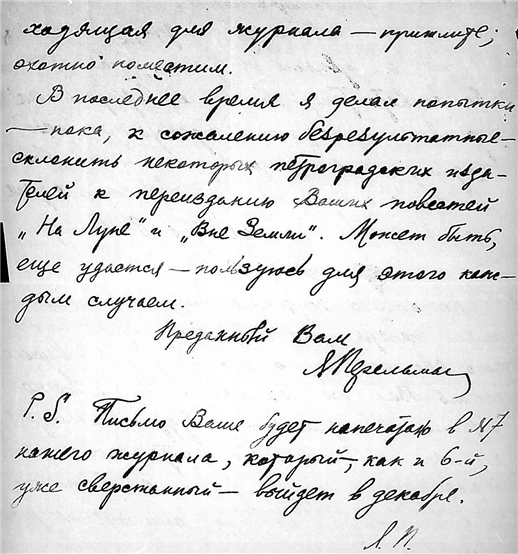 ходящая для журнала — пришлите;
охотно поместим.
В последнее время я делал попытки
— пока, к сожалению безрезультатные —
склонить некоторых петроградских изда-
телей к переизданию Ваших повестей
„На Луне" и „Вне Земли". Может быть,
еще удастся — пользуюсь для этого каж-
дым случаем.
Преданный Вам
Я Перельман
P. S. Письмо Ваше будет напечатано в №7
нашего журнала, который, как и 6-й,
уже сверстанный — выйдет в декабре.
Я. П.